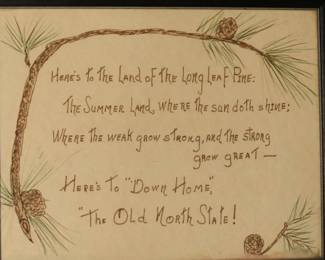 Here's to the Land of the Long Leaf Pine:
The Summer Land, where the sun doth shine;
Where the weak grow strong, and the strong
grow great —
Here's to "Down Home",
"The Old North State!